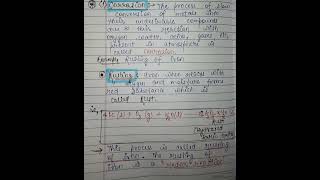 Corrosion :- The process of slow
conversion of metals into
their undesirable compounds
due to their reaction with
oxygen, water, acids, gases etc
present in atmosphere is
called corrosion.
Example Rusting of Iron
Rusting Iron when reacts with
oxygen and moisture forms
red substance which is
called Rust.
Rust
This process is called rusting
of iron. The rusting of
Iron is a